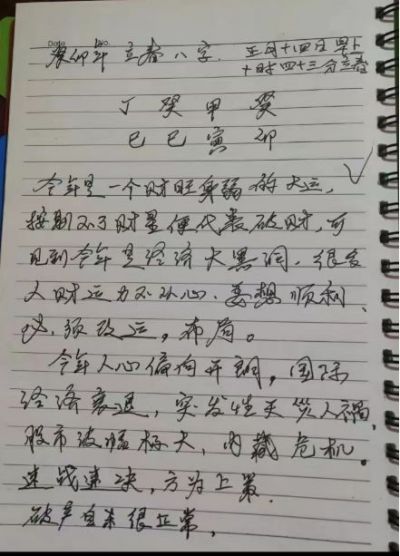 癸卯年 立春 八字. 正月十四日早上
十时四十三分立春
丁 癸 甲 癸
巳 巳 寅 卯
今年是一个财旺身弱的大运,
接那不了财星便代表破财,可
见到今年是经济大黑洞,很多
人财运力不从心,要想顺利,
必须改运,布局。
今年人心偏向开朗,国际
经济衰退,突发性天灾人祸,
股市波幅极大,内藏危机。
速战速决,方为上策.
破产自杀很正常,